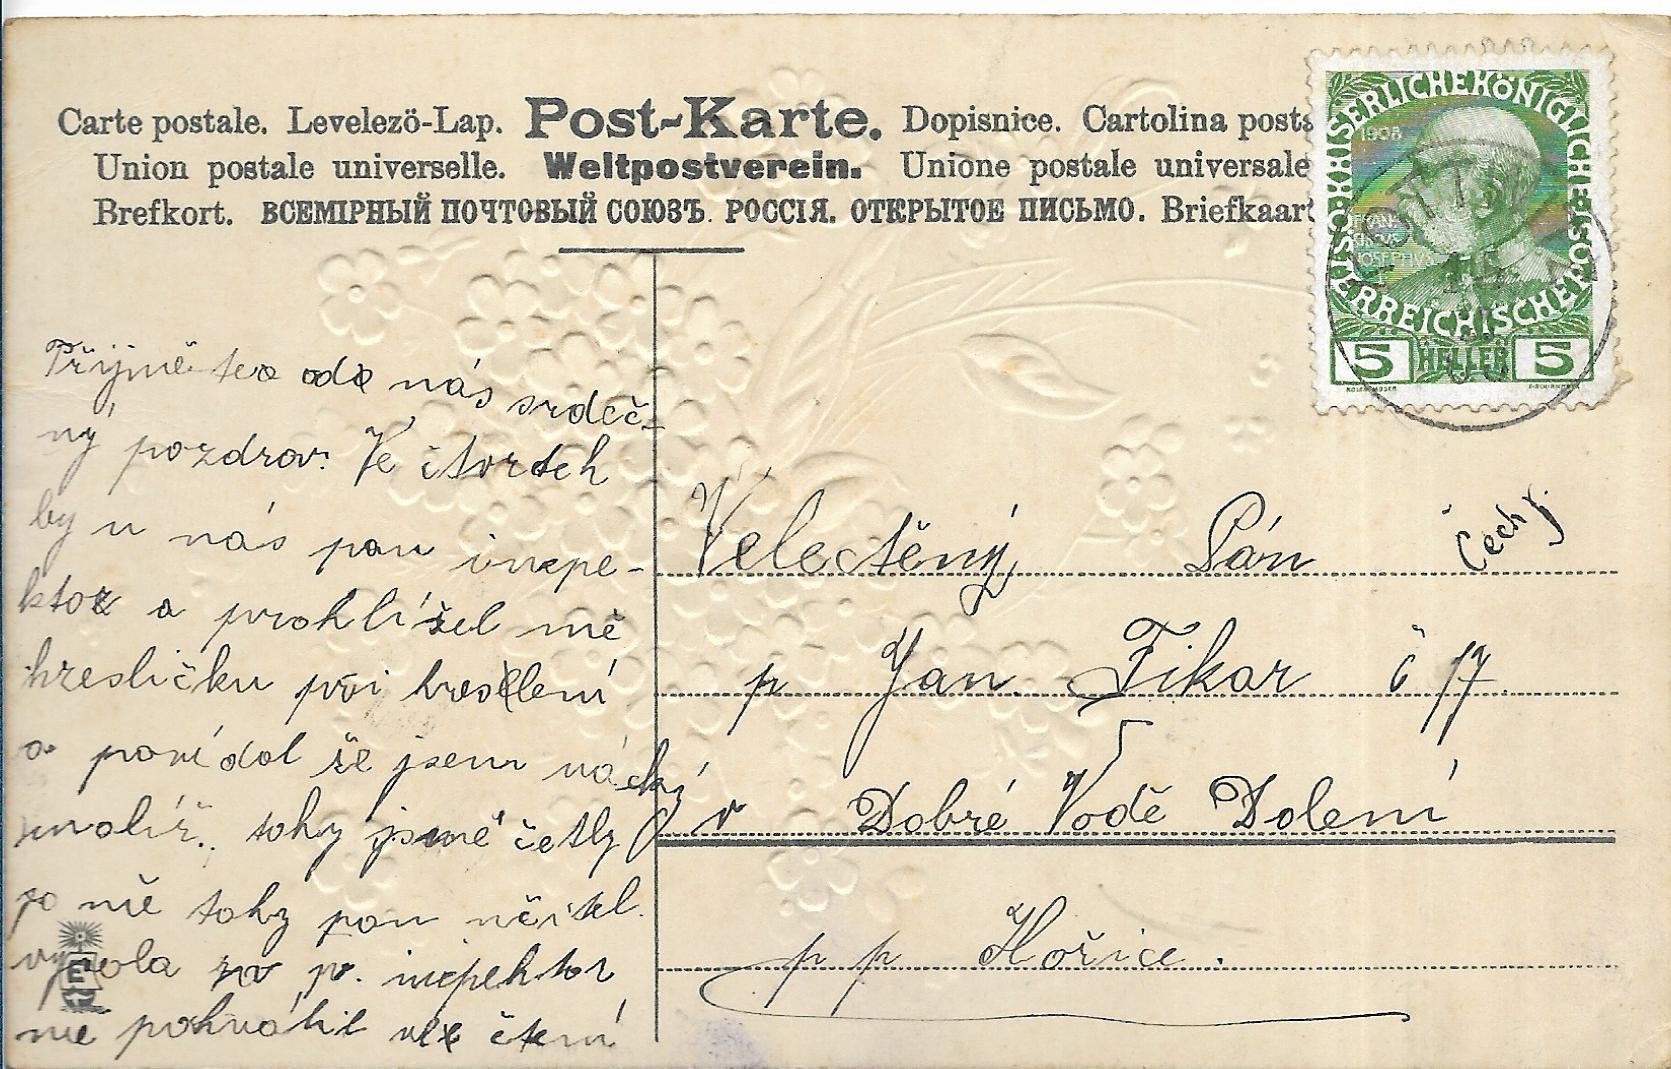 Carte postale. Levelezö-Lap. Post-Karte. Dopisnice. Cartolina posta
Union postale universelle. Weltpostverein. Unione postale universale
Brefkort. ВСЕМІРНЫЙ ПОЧТОВЫЙ СОЮЗЪ. РОССІЯ. ОТКРЫТОЕ ПИСЬМО. Briefkaart
KAISERLICHE KÖNIGLICHE
ÖSTERREICHISCHE POST
1908
FRANCISCVS
IOSEPHVS I
5 HELLER 5
Přijměte od nás srdeč-
ný pozdrav. Ve čtvrtek
by u nás pan inspe-
ktor a prohlížel mě
kresličku při kreslení
a povídal že jsem
malíř. tohy jsme četly
po mě tohy pan učitel
vyvola p. inspektor
mě pohválil čtení
Velectěný Pán
Čechy
p Jan Fikar č 17
v Dobré Vodě Dolení
p p Hořice.